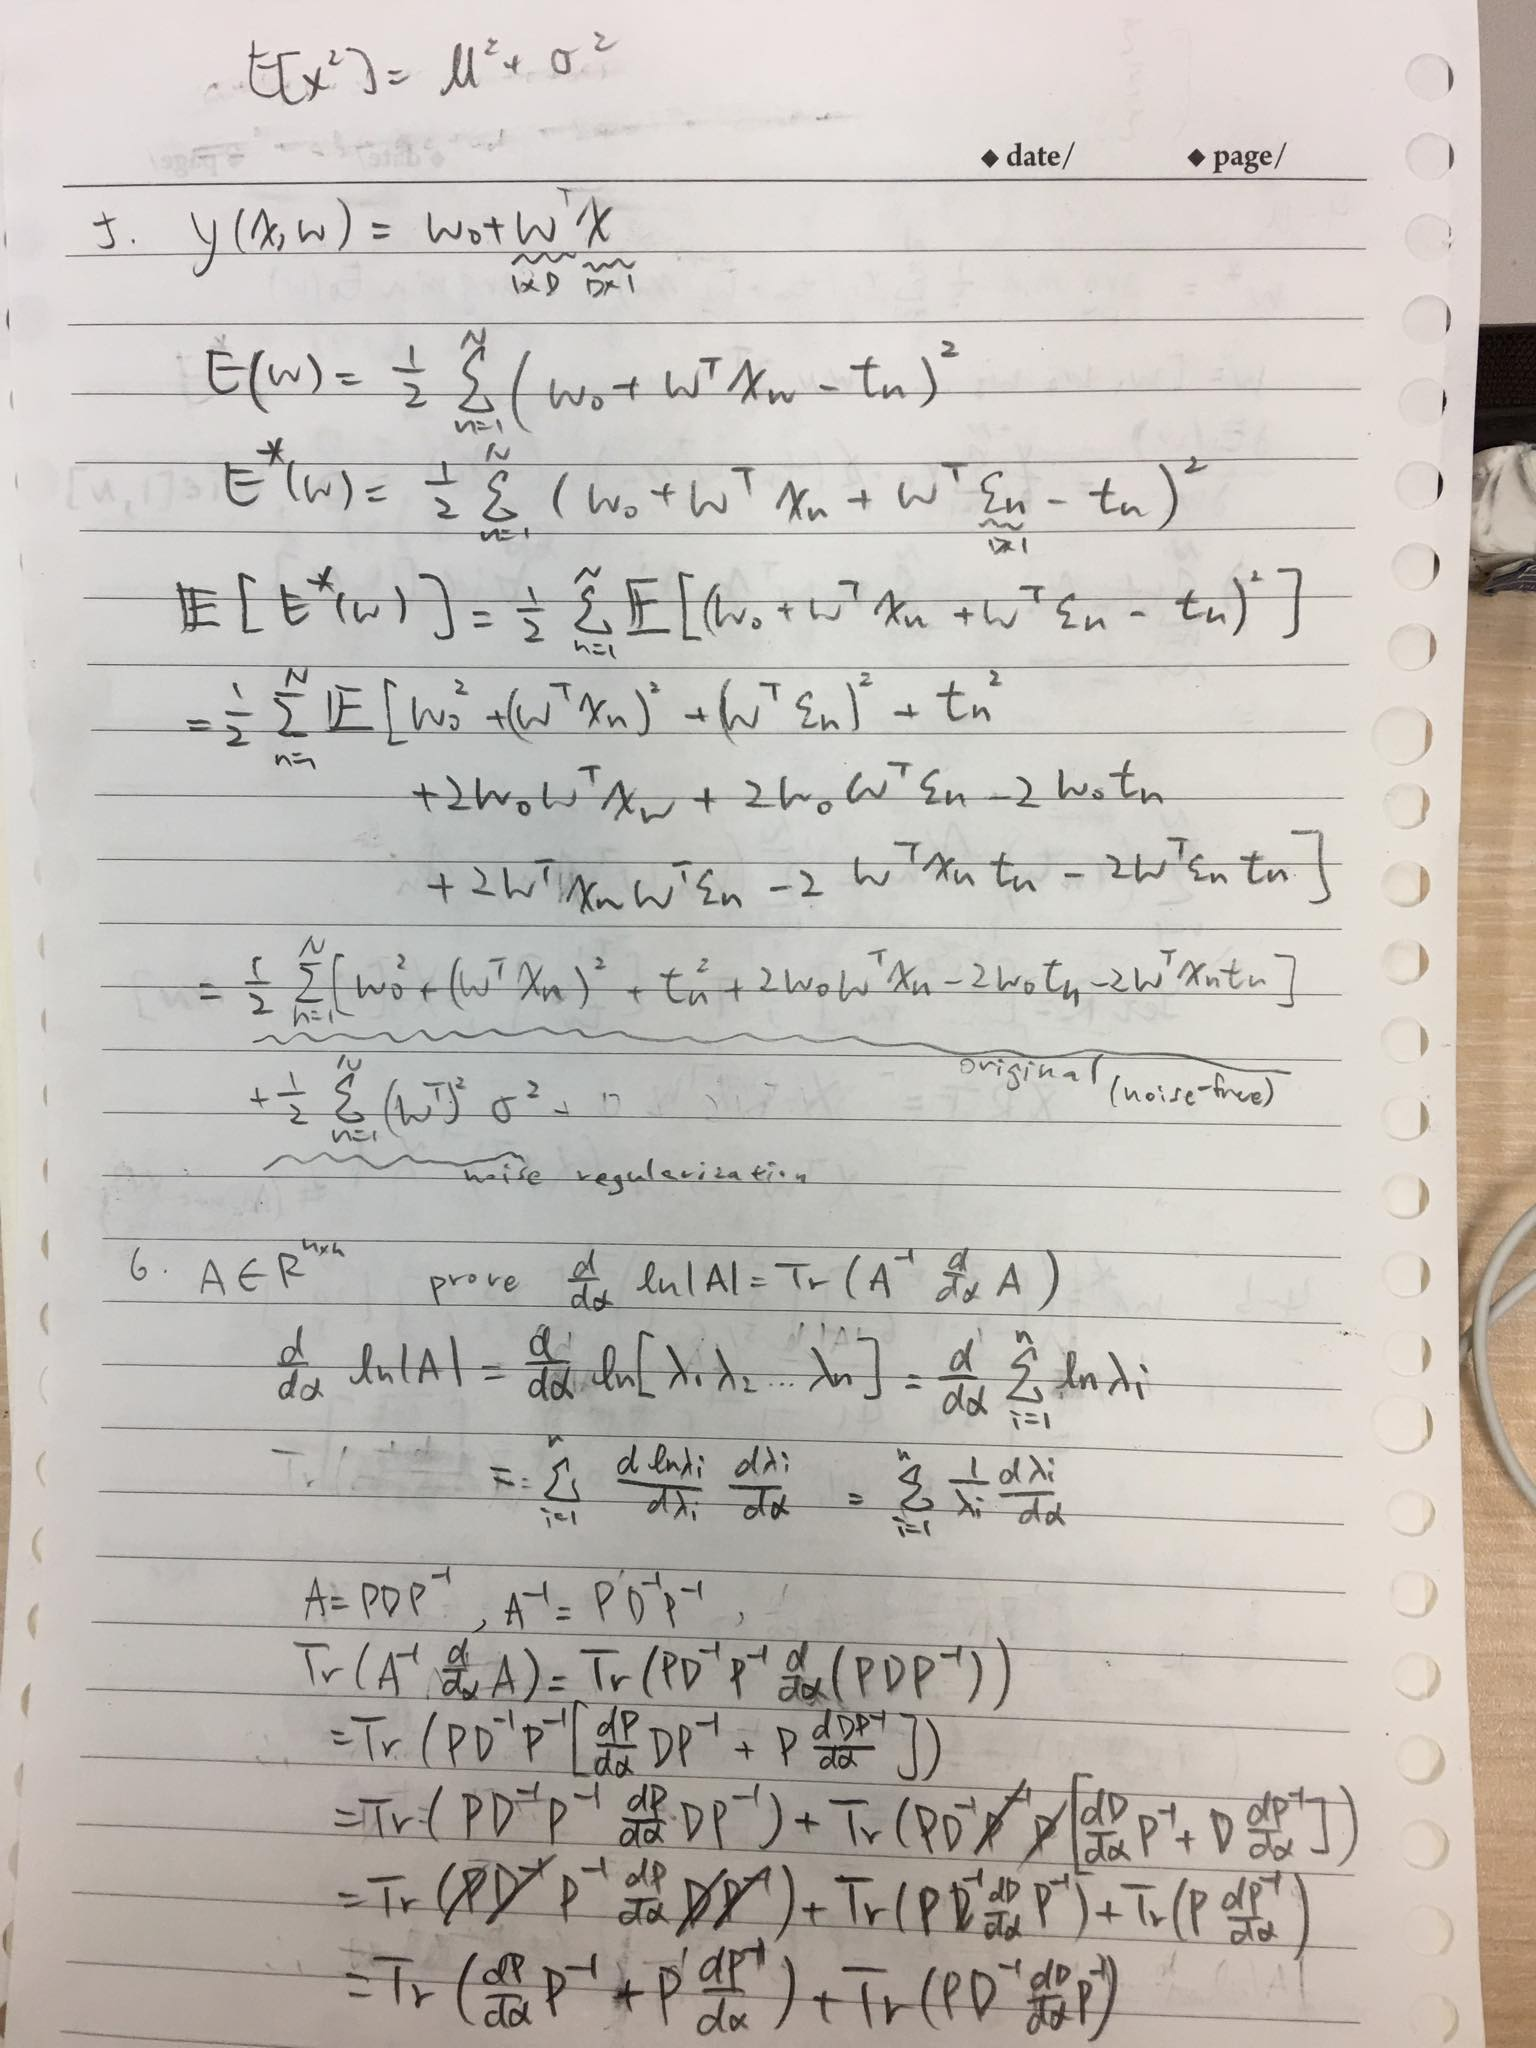 E[x²] = μ² + σ²
◆ date/ ◆ page/
5. y(x,w) = w₀ + wᵀx
1×D D×1
E(w) = 1/2 Σₙ₌₁ᴺ (w₀ + wᵀxₙ - tₙ)²
E*(w) = 1/2 Σₙ₌₁ᴺ (w₀ + wᵀxₙ + wᵀεₙ - tₙ)²
D×1
𝔼[E*(w)] = 1/2 Σₙ₌₁ᴺ 𝔼[(w₀ + wᵀxₙ + wᵀεₙ - tₙ)²]
= 1/2 Σₙ₌₁ᴺ 𝔼[w₀² + (wᵀxₙ)² + (wᵀεₙ)² + tₙ²
+ 2w₀wᵀxₙ + 2w₀wᵀεₙ - 2w₀tₙ
+ 2wᵀxₙwᵀεₙ - 2wᵀxₙtₙ - 2wᵀεₙtₙ]
= 1/2 Σₙ₌₁ᴺ [w₀² + (wᵀxₙ)² + tₙ² + 2w₀wᵀxₙ - 2w₀tₙ - 2wᵀxₙtₙ]
original (noise-free)
+ 1/2 Σₙ₌₁ᴺ (wᵀ)² σ²
noise regularization
6. A ∈ Rⁿˣⁿ prove d/dα ln|A| = Tr(A⁻¹ d/dα A)
d/dα ln|A| = d/dα ln[λ₁λ₂...λₙ] = d/dα Σᵢ₌₁ⁿ lnλᵢ
= Σᵢ₌₁ⁿ dlnλᵢ/dλᵢ dλᵢ/dα = Σᵢ₌₁ⁿ 1/λᵢ dλᵢ/dα
A = PDP⁻¹, A⁻¹ = PD⁻¹P⁻¹,
Tr(A⁻¹ d/dα A) = Tr(PD⁻¹P⁻¹ d/dα(PDP⁻¹))
= Tr(PD⁻¹P⁻¹[dP/dα DP⁻¹ + P dDP⁻¹/dα])
= Tr(PD⁻¹P⁻¹ dP/dα DP⁻¹) + Tr(PD⁻¹P⁻¹P[dD/dα P⁻¹ + D dP⁻¹/dα])
= Tr(PD⁻¹P⁻¹ dP/dα DP⁻¹) + Tr(PD⁻¹ dD/dα P⁻¹) + Tr(P dP⁻¹/dα)
= Tr(dP/dα P⁻¹ + P dP⁻¹/dα) + Tr(PD⁻¹ dD/dα P⁻¹)